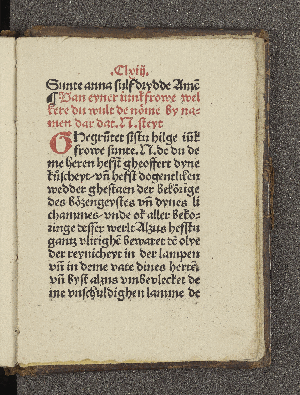 .Clviij.
Sunte anna sulf drydde Amē
¶ Van eyner iunkfrowe wel
kere du wult de nöme by na-
men dar dat .N. steyt
GHegrütet sistu hilge iūk
frowe sunte .N. de du de
me heren heffst gheoffert dyne
küscheyt vñ hefst dogentliken
wedder ghestaen der bekörige
des bözengeystes vñ dynes li
chammes vnde ok aller beko-
ringe desser werlt Alzus hefstu
gantz vlitighē bewaret dē olye
der reynicheyt in der lampen
vñ in deme vate dines hertē
vñ byst alzus vmbevlecket de
me vnschuldighen lamme de